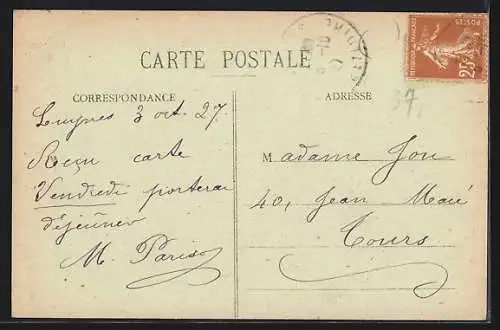 CARTE POSTALE
CORRESPONDANCE
ADRESSE
3 oct. 27
Reçu carte
Vendredi porterai
déjeuner
M. Pariso
Madame Jou
40, Jean Macé
Tours
POSTES
25c
37,